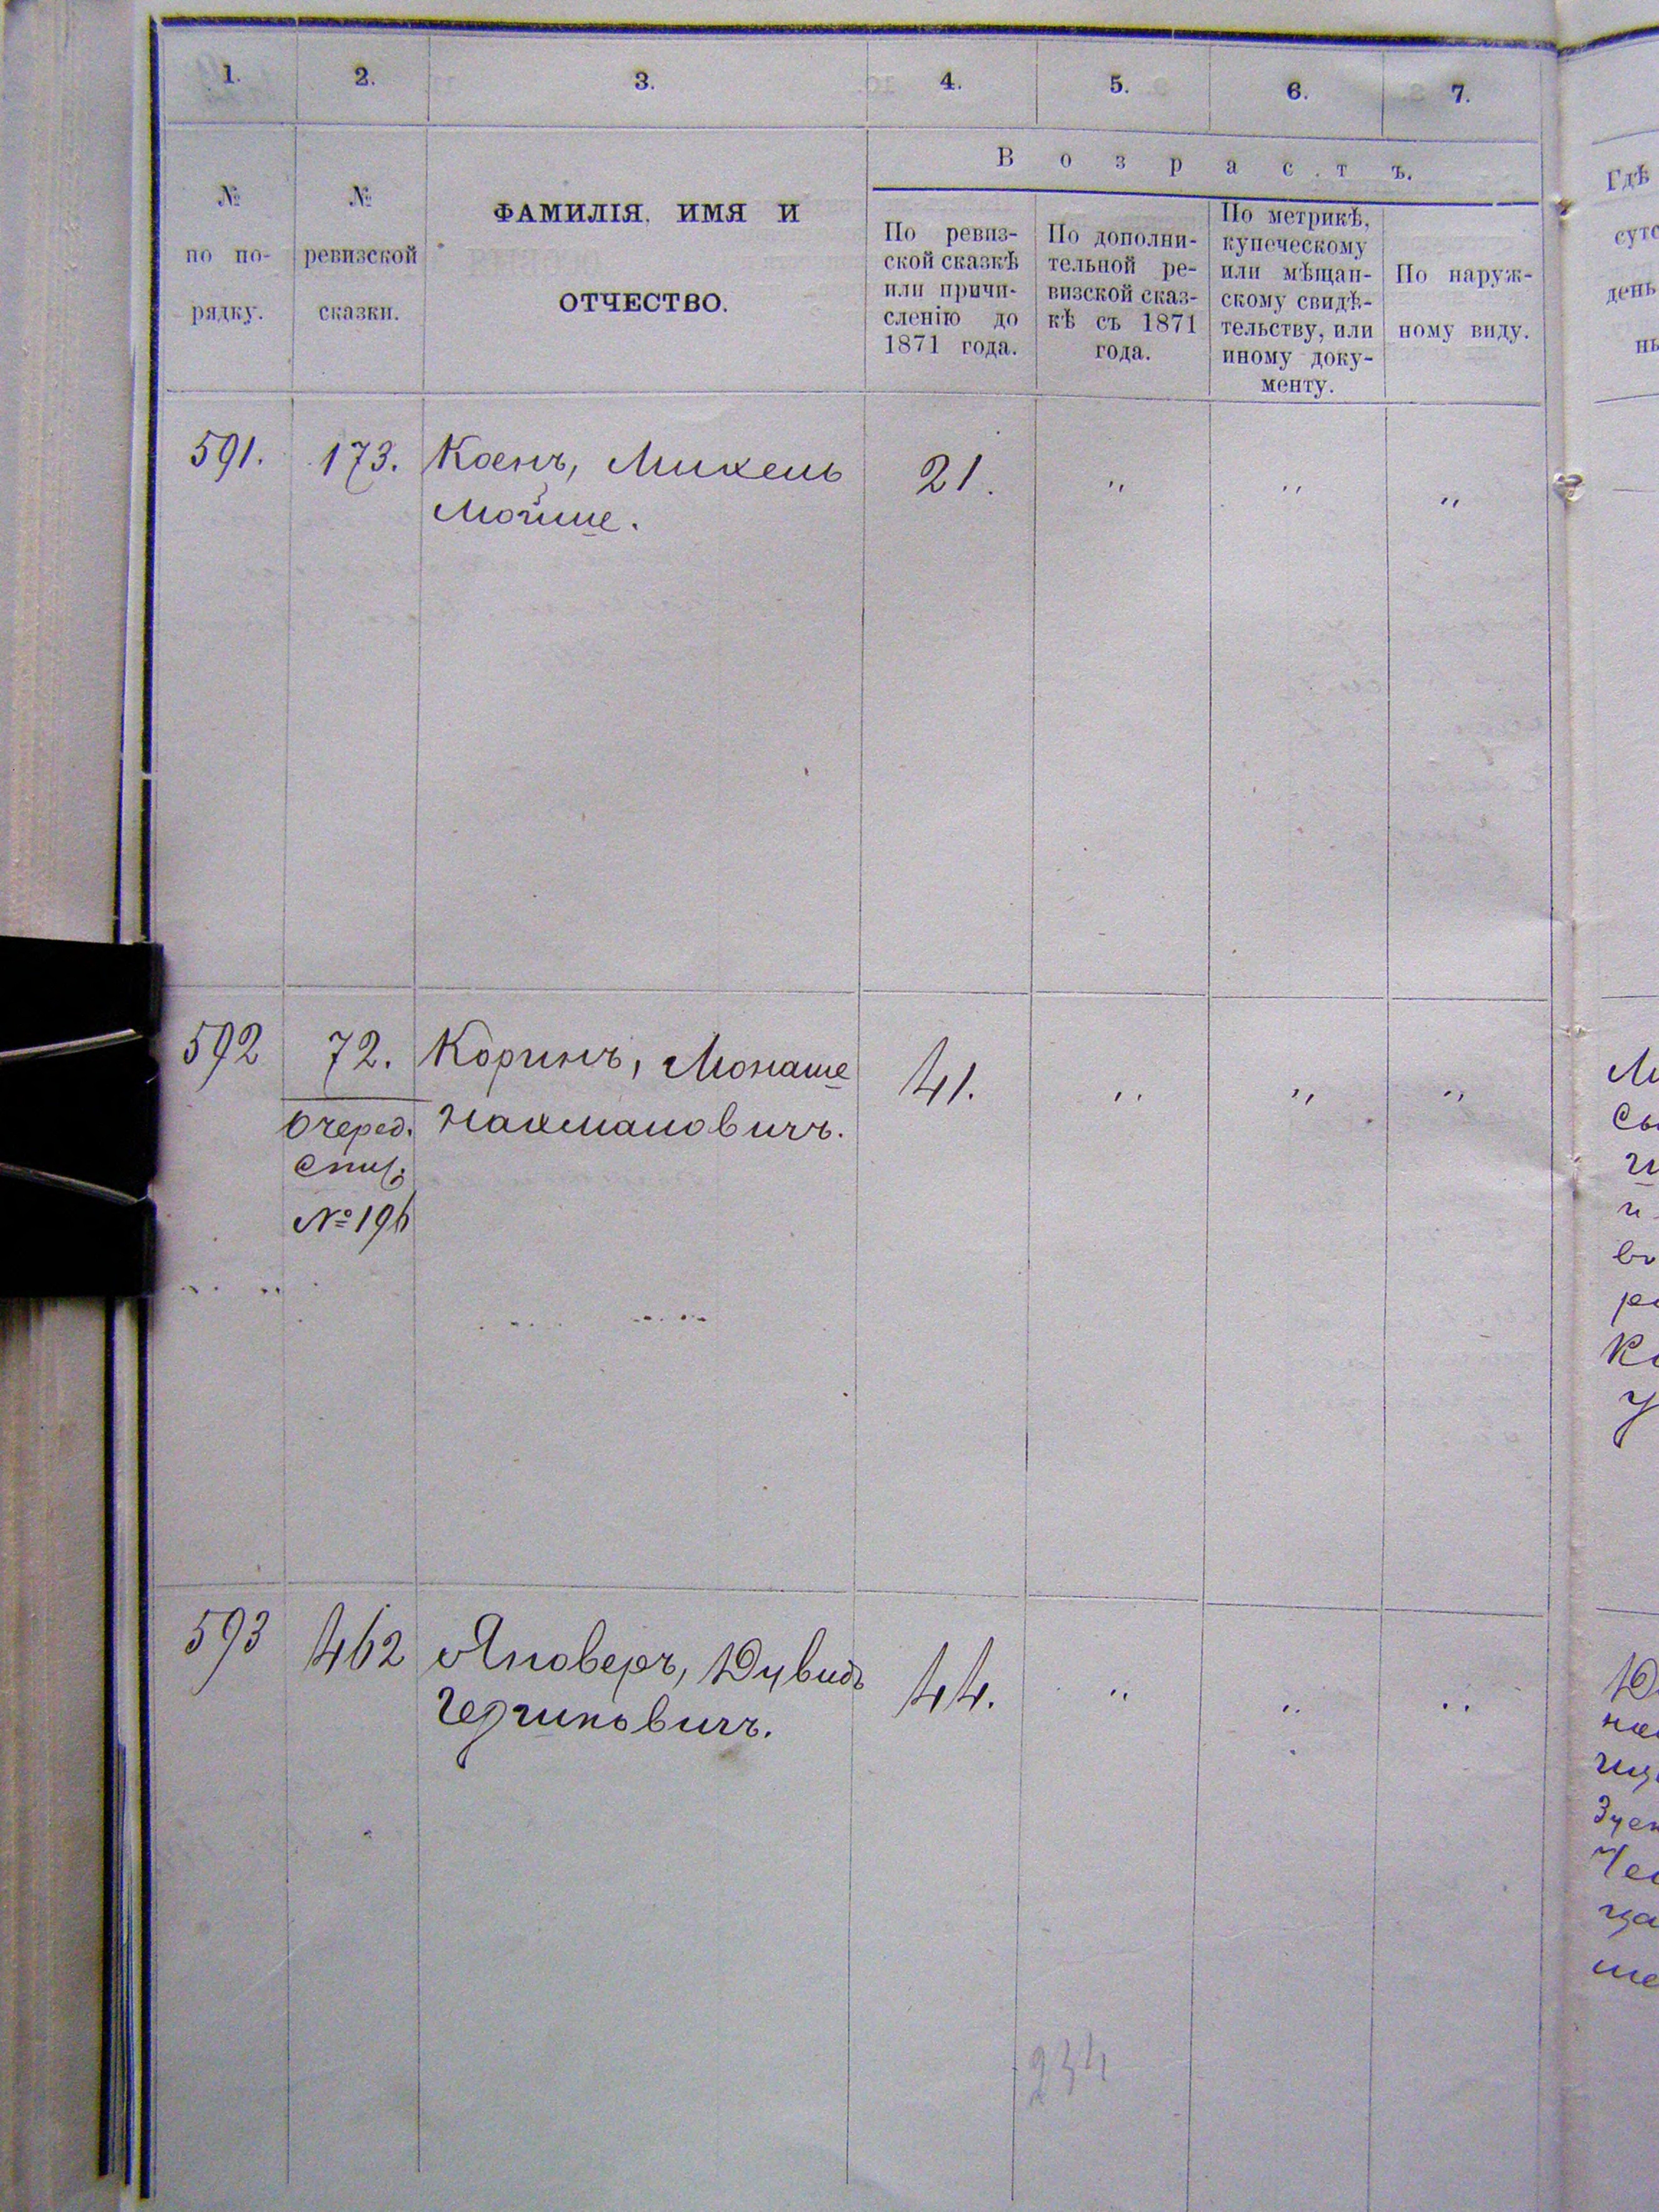 1. 2. 3. 4. 5. 6. 7.
№ по по-рядку.
№ ревизской сказки.
ФАМИЛІЯ, ИМЯ И
ОТЧЕСТВО.
Возрастъ.
По ревиз-
ской сказкѣ
или причи-
сленію до
1871 года.
По дополни-
тельной ре-
визской сказ-
кѣ съ 1871
года.
По метрикѣ,
купеческому
или мѣщан-
скому свидѣ-
тельству, или
иному доку-
менту.
По наруж-
ному виду.
Гдѣ
591. 173. Коенъ, Михель 21. " " "
Мойше.
592 72. Коринъ, Монаше 41. " " "
Очеред. Нахмановичъ.
Спис.
№ 196
593 462 Яноверъ, Дувидъ 44. " " "
234